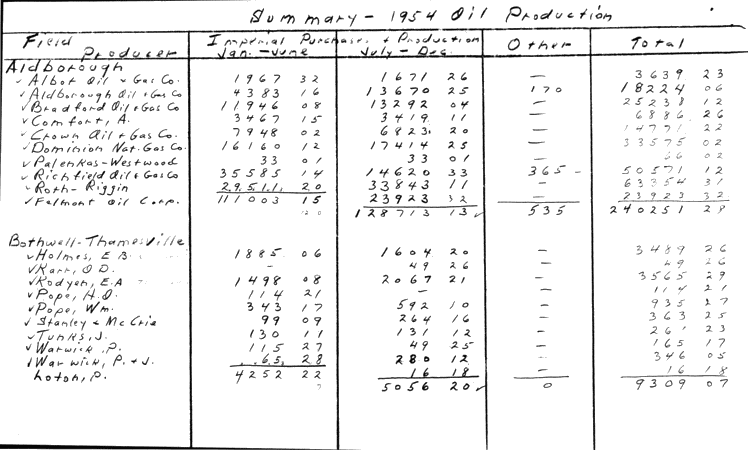 Summary - 1954 Oil Production
Field Producer Imperial Purchases & Production Jan.-June July-Dec. Other Total
Aldborough
✓ Albot Oil & Gas Co. 1967 32 1671 26 — 3639 23
✓ Aldborough Oil & Gas Co 4383 16 13670 25 170 18224 06
✓ Bradford Oil & Gas Co 11946 08 13292 04 — 25238 12
✓ Comfort, A. 3467 15 3419 11 — 6886 26
✓ Crown Oil & Gas Co. 7948 02 6823 20 — 14771 22
✓ Dominion Nat. Gas Co. 16160 12 17414 25 — 33575 02
✓ Palenkas-Westwood 33 01 33 01 — 66 02
✓ Richfield Oil & Gas Co 35585 14 14620 33 365 — 50571 12
✓ Roth-Riggin 29511 20 33843 11 — 63354 31
✓ Felmont Oil Corp. 23923 32 — 23923 32
111003 15 128713 13 ✓ 535 240251 28
Bothwell-Thamesville
✓ Holmes, E B 1885 06 1604 20 — 3489 26
✓ Karr, O D. — 49 26 — 49 26
✓ Kodyen, E.A 1498 08 2067 21 — 3565 29
✓ Pope, H.O. 114 21 — — 114 21
✓ Pope, Wm. 343 17 592 10 — 935 27
✓ Stanley & McCrie 99 09 264 16 — 363 25
✓ Tunks, J. 130 11 131 12 — 261 23
✓ Warwick, P. 115 27 49 25 — 165 17
✓ Warwick, P. & J. 65 28 280 12 — 346 05
Loton, P. 16 18 — 16 18
4252 22 5056 20 ✓ 0 9309 07